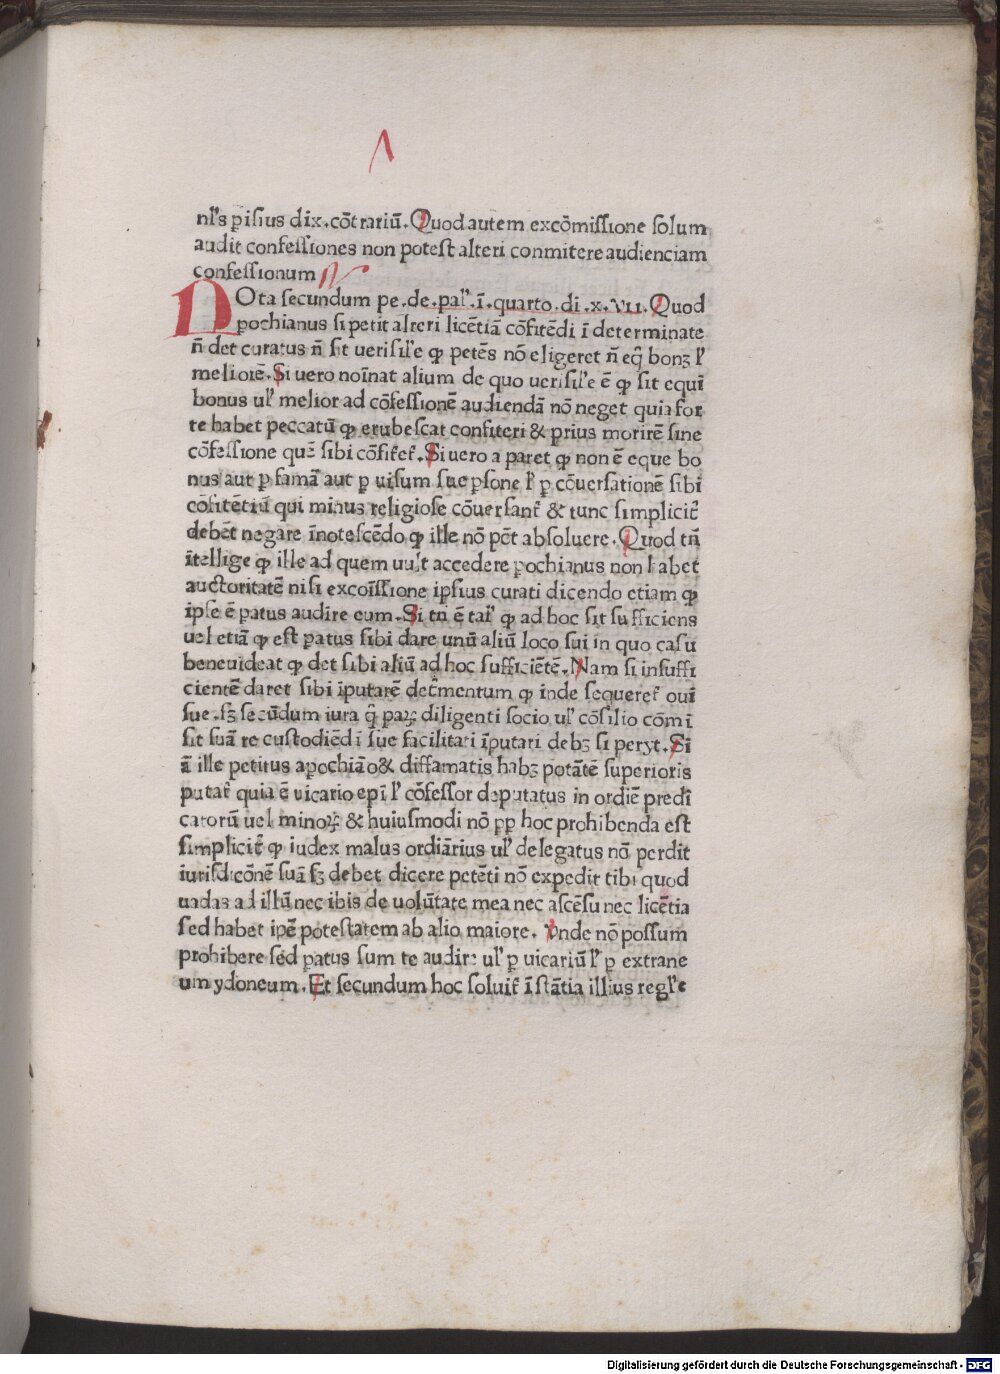 nl's ꝑisius dix. cōtrariū. Quod autem excōmissione solum
audit confessiones non potest alteri conmitere audienciam
confessionum
NOta secundum pe. de. pal'. ī. quarto. di. x. VII. Quod
ꝑochianus si petit alteri licētiā cōfitēdi ī determinate
n̄ det curatus n̄ sit uerisil'e ꝙ petēs nō eligeret n̄ eq̄ bonꝫ l'
meliorē. Si uero noīnat alium de quo uerisil'e ē ꝙ sit equī
bonus ul' melior ad cōfessionē audiendā nō neget quia for
te habet peccatū ꝙ erubescat confiteri & prius morirē sine
cōfessione quē sibi cōfitet̄. Si uero a paret ꝙ non ē eque bo
nus aut ꝑ famā aut ꝑ uisum sue ꝑsone l' ꝑ cōuersationē sibi
cōfitētiū qui minus religiose cōuersant̄ & tunc simplicit̄
debēt negare īnotescēdo ꝙ ille nō pc̄t absoluere. Quod tn̄
ītellige ꝙ ille ad quem uult accedere ꝑochianus non habet
auctoritatē nisi excoīssione ipsius curati dicendo etiam ꝙ
ipse ē ꝑatus audire eum. Si tn̄ ē tal' ꝙ ad hoc sit sufficiens
uel etiā ꝙ est ꝑatus sibi dare unū aliū loco sui in quo casu
beneuideat ꝙ det sibi aliū ad hoc sufficiētē. Nam si insuffi
cientē daret sibi īputarē det̄mentum ꝙ inde sequeret̄ oui
sue. sꝫ secūdum iura q̄ paꝝ diligenti socio ul' cōsilio cōmi
sit suā re custodiēd ī sue facilitati īputari debꝫ si peryt. Si
ā ille petitus aꝑochiāo & diffamatis habꝫ potātē superioris
putat̄ quia ē uicario epī l' cōfessor deputatus in ordiē predi
catorū uel minoꝝ & huiusmodi nō ꝑꝑ hoc prohibenda est
simplicit̄ ꝙ iudex malus ordiārius ul' delegatus nō perdit
iurisdicōnē suā sꝫ debet dicere petēti nō expedit tibi quod
uadas ad illū nec ibis de uolūtate mea nec ascēsu nec licētia
sed habet ipē potestatem ab alio maiore. Vnde nō possum
prohibere sed ꝑatus sum te audire ul' ꝑ uicariū l' ꝑ extrane
um ydoneum. Et secundum hoc soluit̄ īstātia illius regl'e
Digitalisierung gefördert durch die Deutsche Forschungsgemeinschaft - DFG